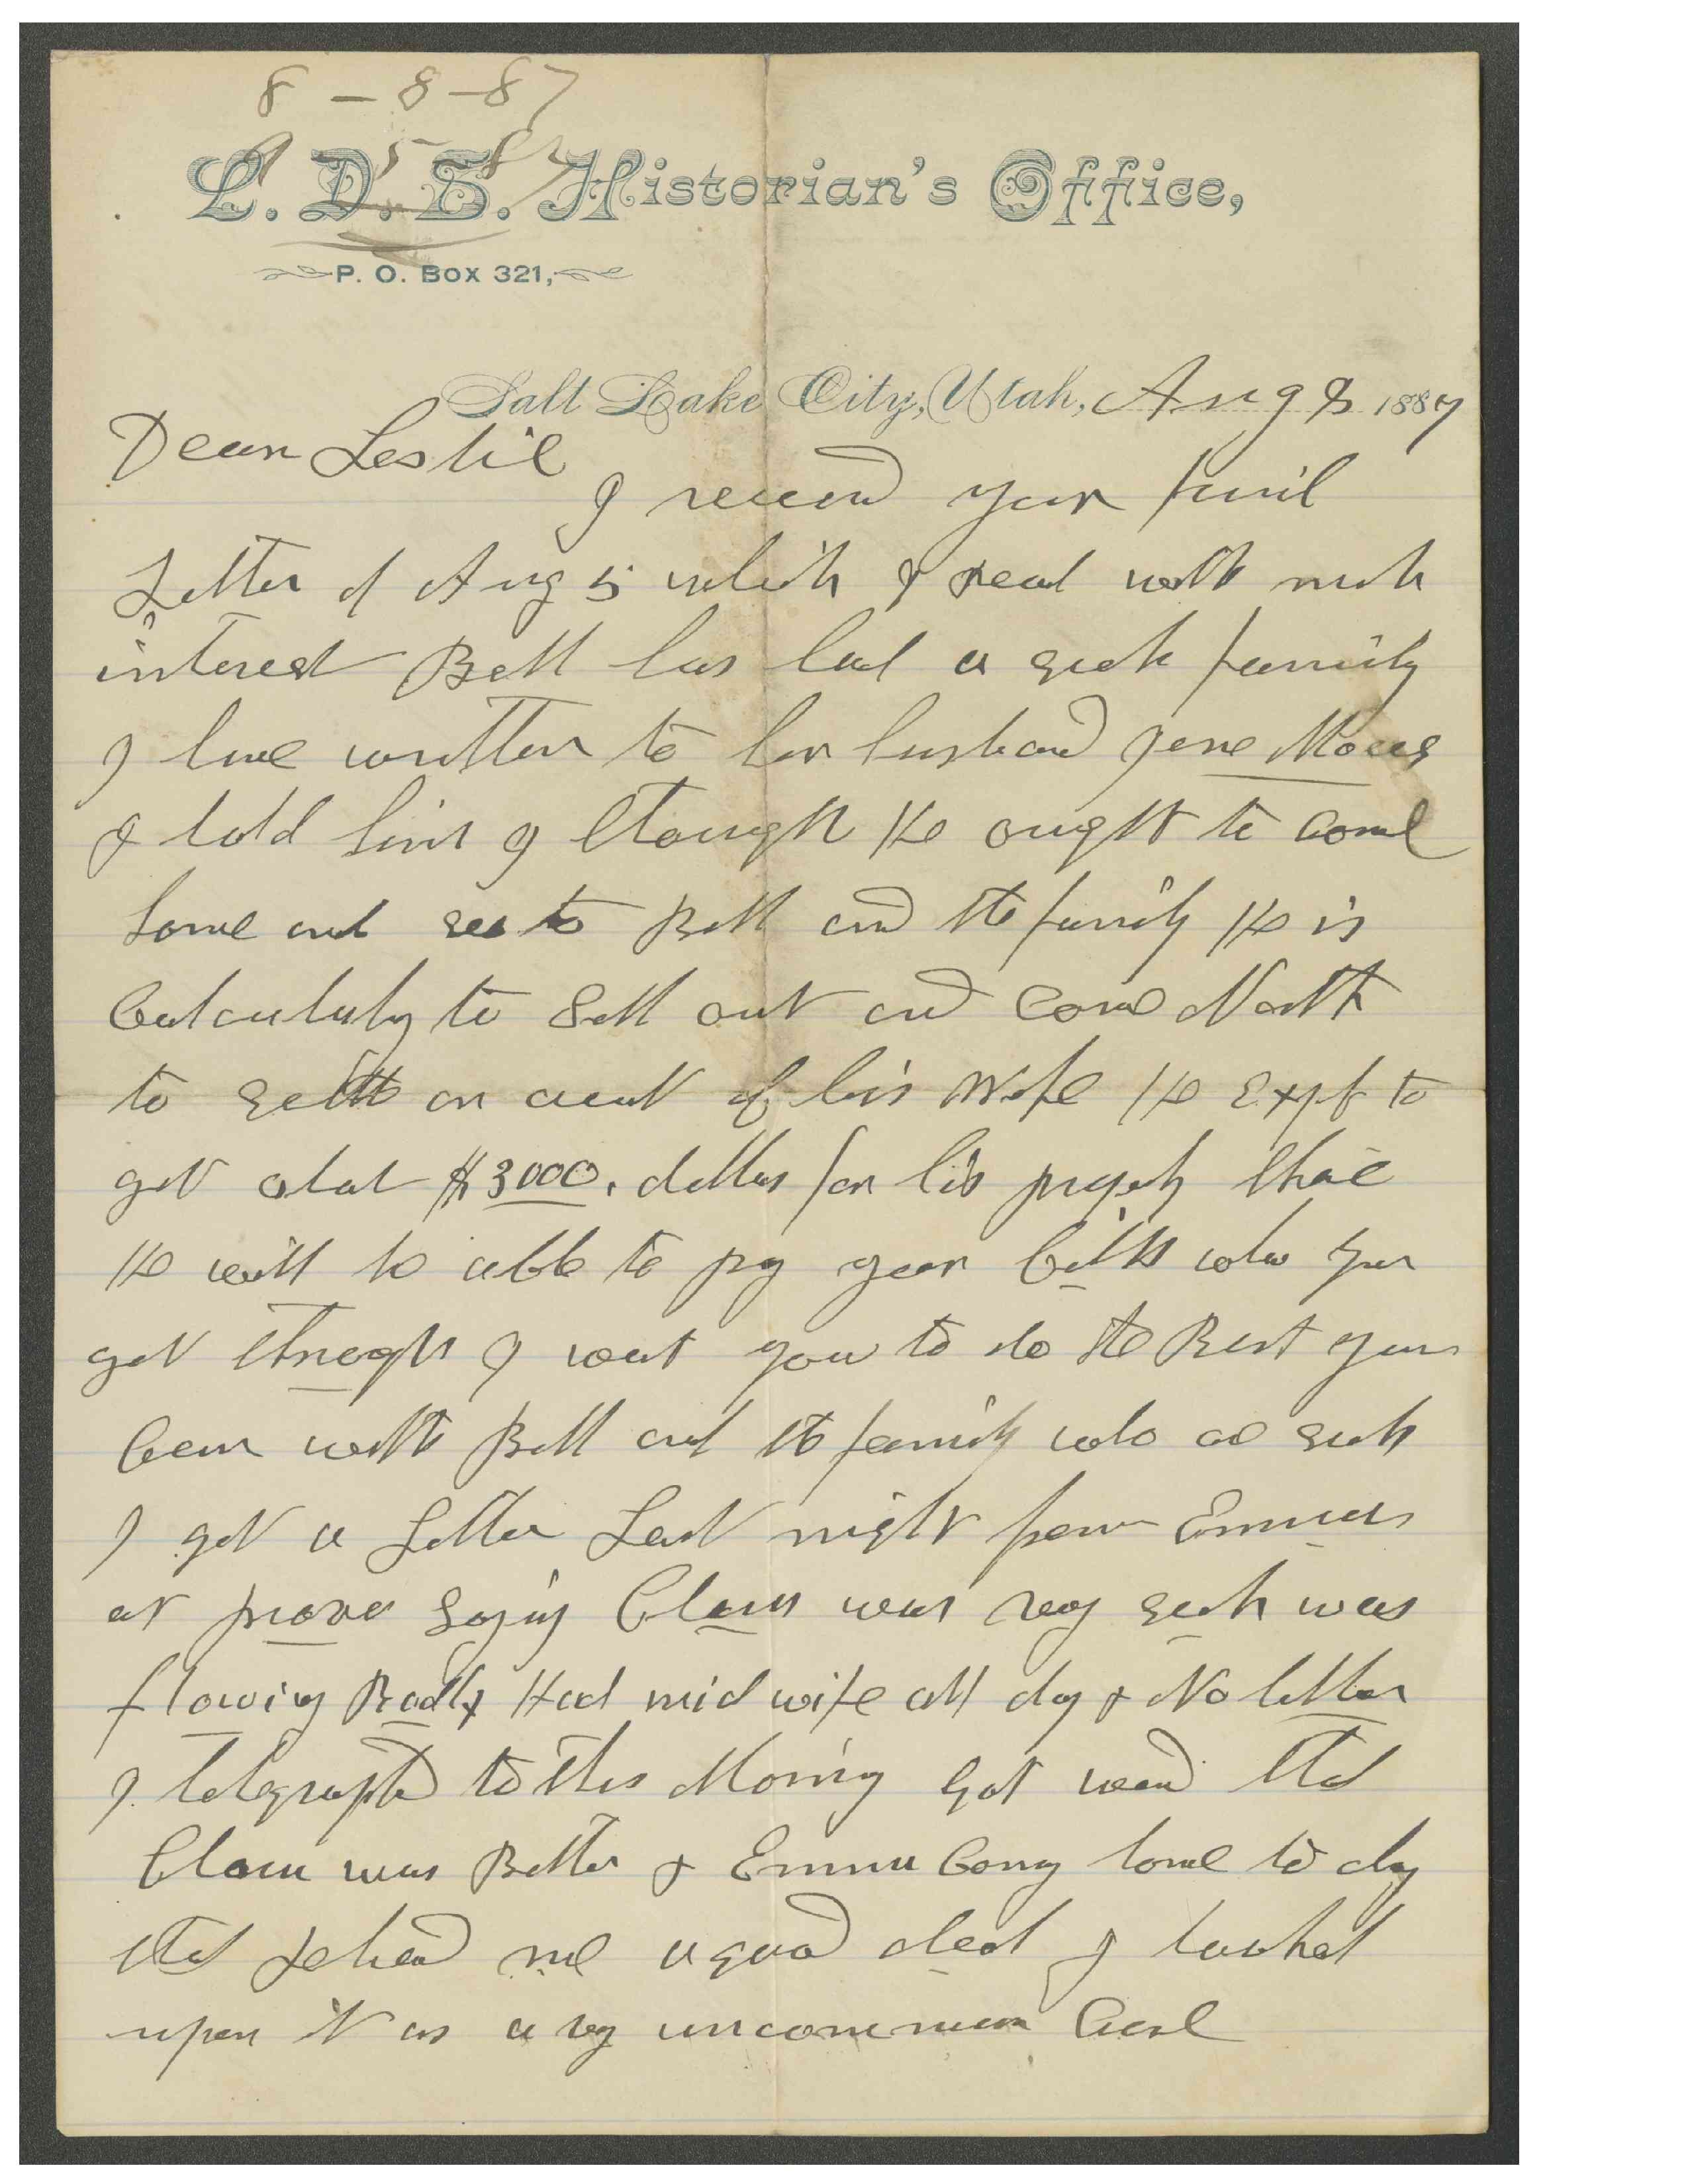 8 - 8 - 87
L. D. S. Historian's Office,
P. O. Box 321,
Salt Lake City, Utah, Aug 8 1887
Dear Leslie
I received your kind
Letter of Aug 5 which I read with much
interest Bell has had a sick family
I have written to her husband Jesse Moses
I told him I thought He ought to come
home and see to Bell and the family He is
Calculating to Sell out and Come North
to settle on account of his Wife He Expt to
get about $3000. dollars for his property then
He will be able to pay your Bills when you
get through I want you to do the Best you
Can with Bell and the family who are sick
I got a Letter Last night from Emma
at provo saying Clara was very sick was
flowing Badly Had mid wife all day & No better
I telegraphed to this Morning Got word that
Clara was Better & Emma Coming home to day
that relieved me a good deal I looked
upon it as a very uncommon Case